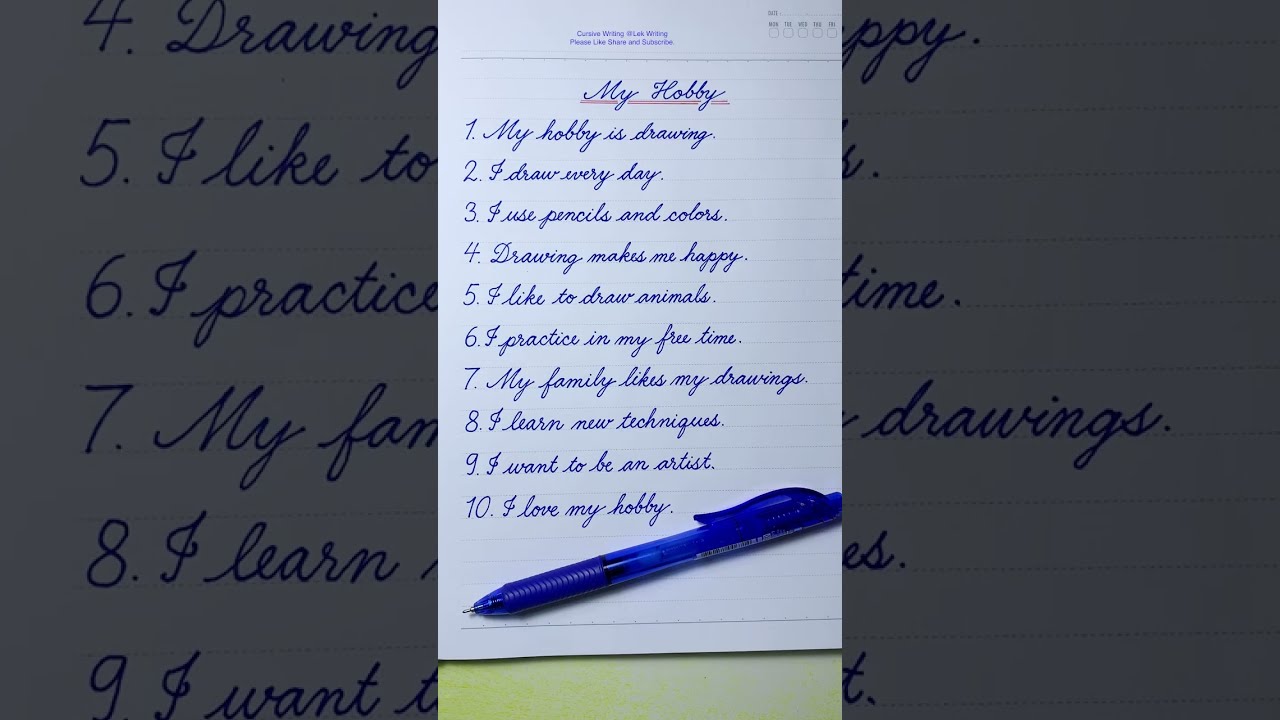 Cursive Writing @Lek Writing
Please Like Share and Subscribe.
DATE :
MON TUE WED THU FRI
My Hobby
1. My hobby is drawing.
2. I draw every day.
3. I use pencils and colors.
4. Drawing makes me happy.
5. I like to draw animals.
6. I practice in my free time.
7. My family likes my drawings.
8. I learn new techniques.
9. I want to be an artist.
10. I love my hobby.
4. Drawing
ppy.
5. I like to
s.
6. I practice
time.
7. My fam
drawings.
8. I learn
es.
9. I want t
t.